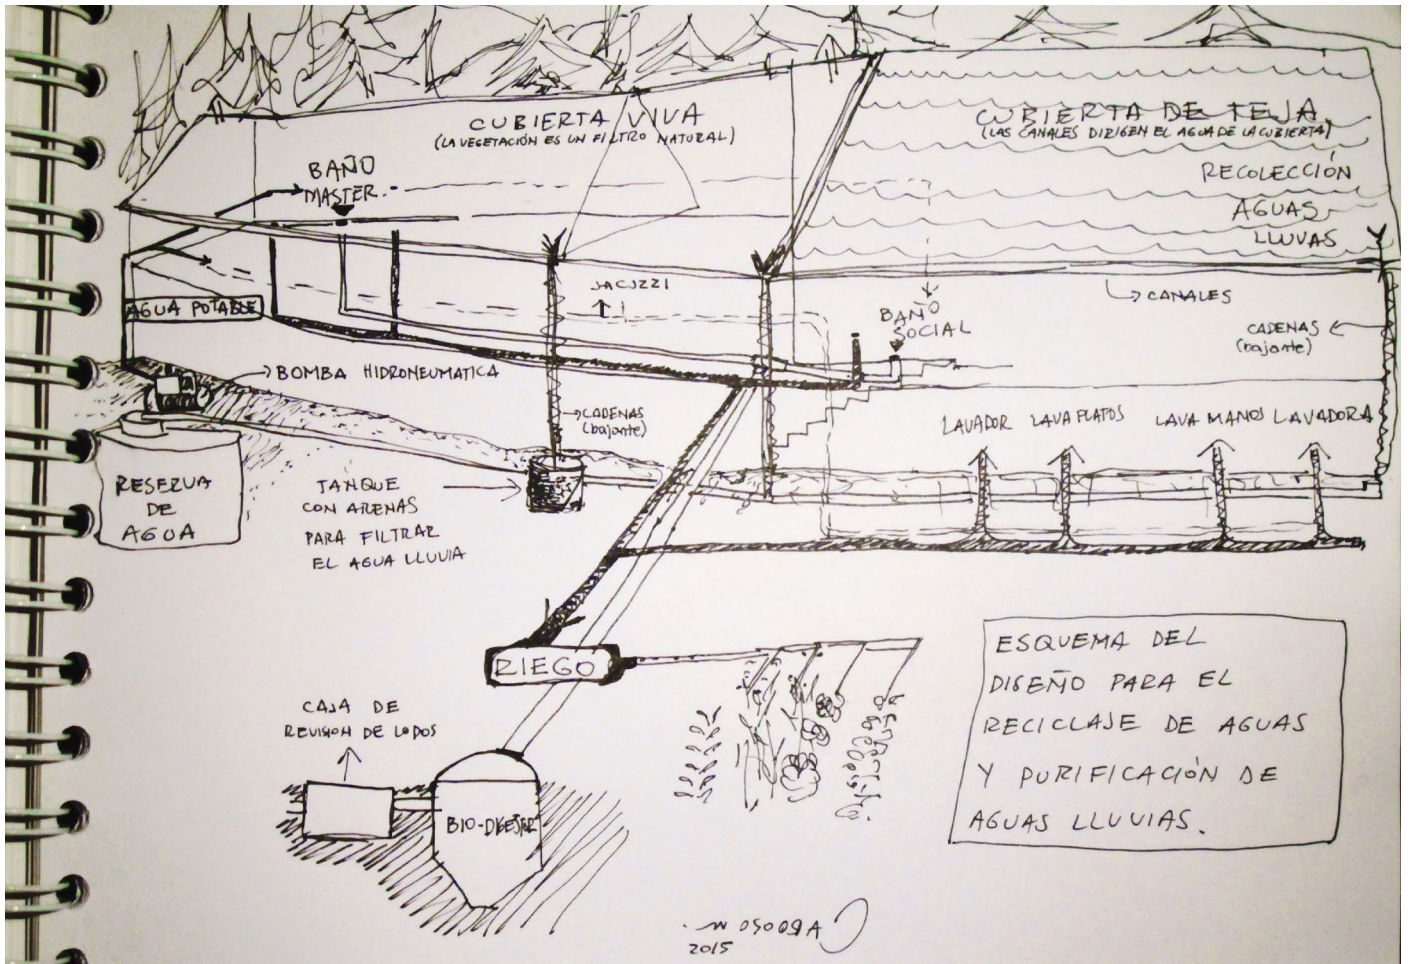 CUBIERTA VIVA
(LA VEGETACIÓN ES UN FILTRO NATURAL)
CUBIERTA DE TEJA
(LAS CANALES DIRIGEN EL AGUA DE LA CUBIERTA)
RECOLECCIÓN
AGUAS
LLUVAS
BAÑO
MASTER
AGUA POTABLE
JACUZZI
BAÑO
SOCIAL
CANALES
CADENAS
(bajante)
BOMBA HIDRONEUMATICA
CADENAS
(bajante)
LAVADOR LAVA PLATOS LAVA MANOS LAVADORA
RESERVA
DE
AGUA
TANQUE
CON ARENAS
PARA FILTRAR
EL AGUA LLUVIA
RIEGO
CAJA DE
REVISION DE LODOS
BIO-DIGESTOR
ESQUEMA DEL
DISEÑO PARA EL
RECICLAJE DE AGUAS
Y PURIFICACIÓN DE
AGUAS LLUVIAS.
2015